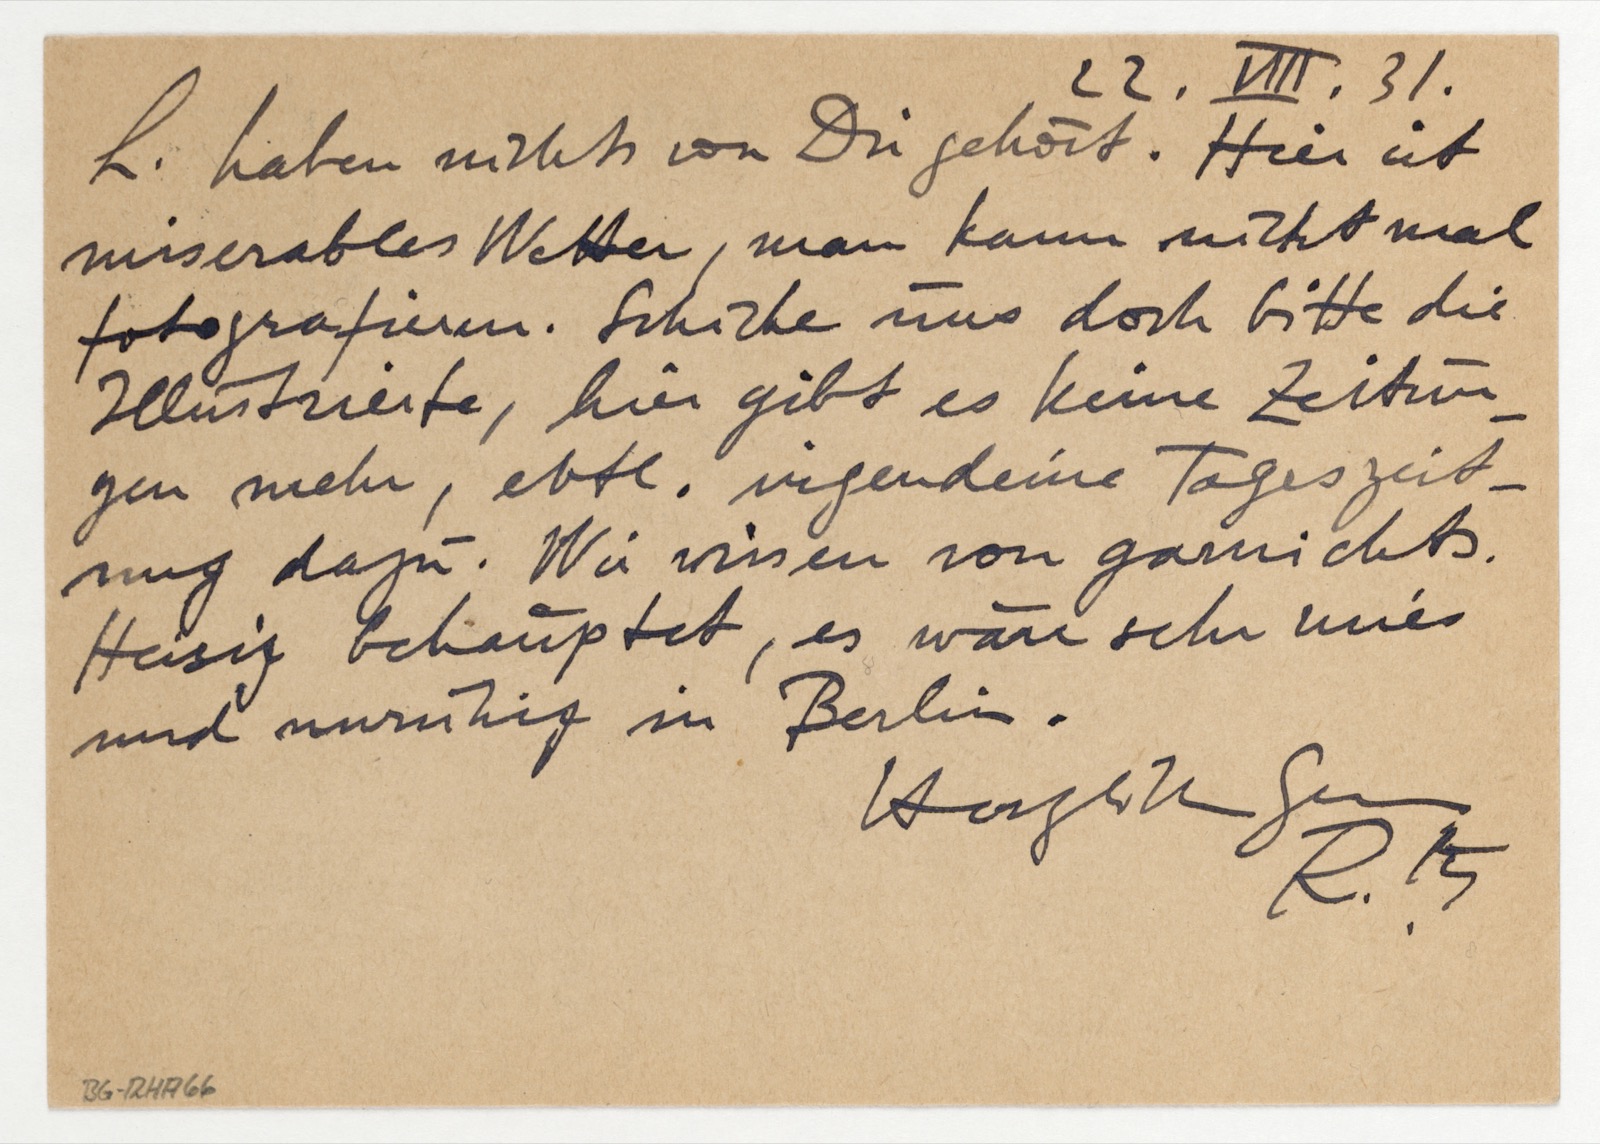 22. VIII. 31.
L. haben nichts von Dir gehört. Hier ist
miserables Wetter, man kann nicht mal
fotografieren. Schicke uns doch bitte die
Illustrierte, hier gibt es keine Zeitun-
gen mehr, evtl. irgendeine Tageszeit-
ung dazu. Wir wissen von garnichts.
Heisig behauptet, es wäre sehr mies
und unruhig in Berlin.
Herzlichen Gruss
R.
BG-RHA 66